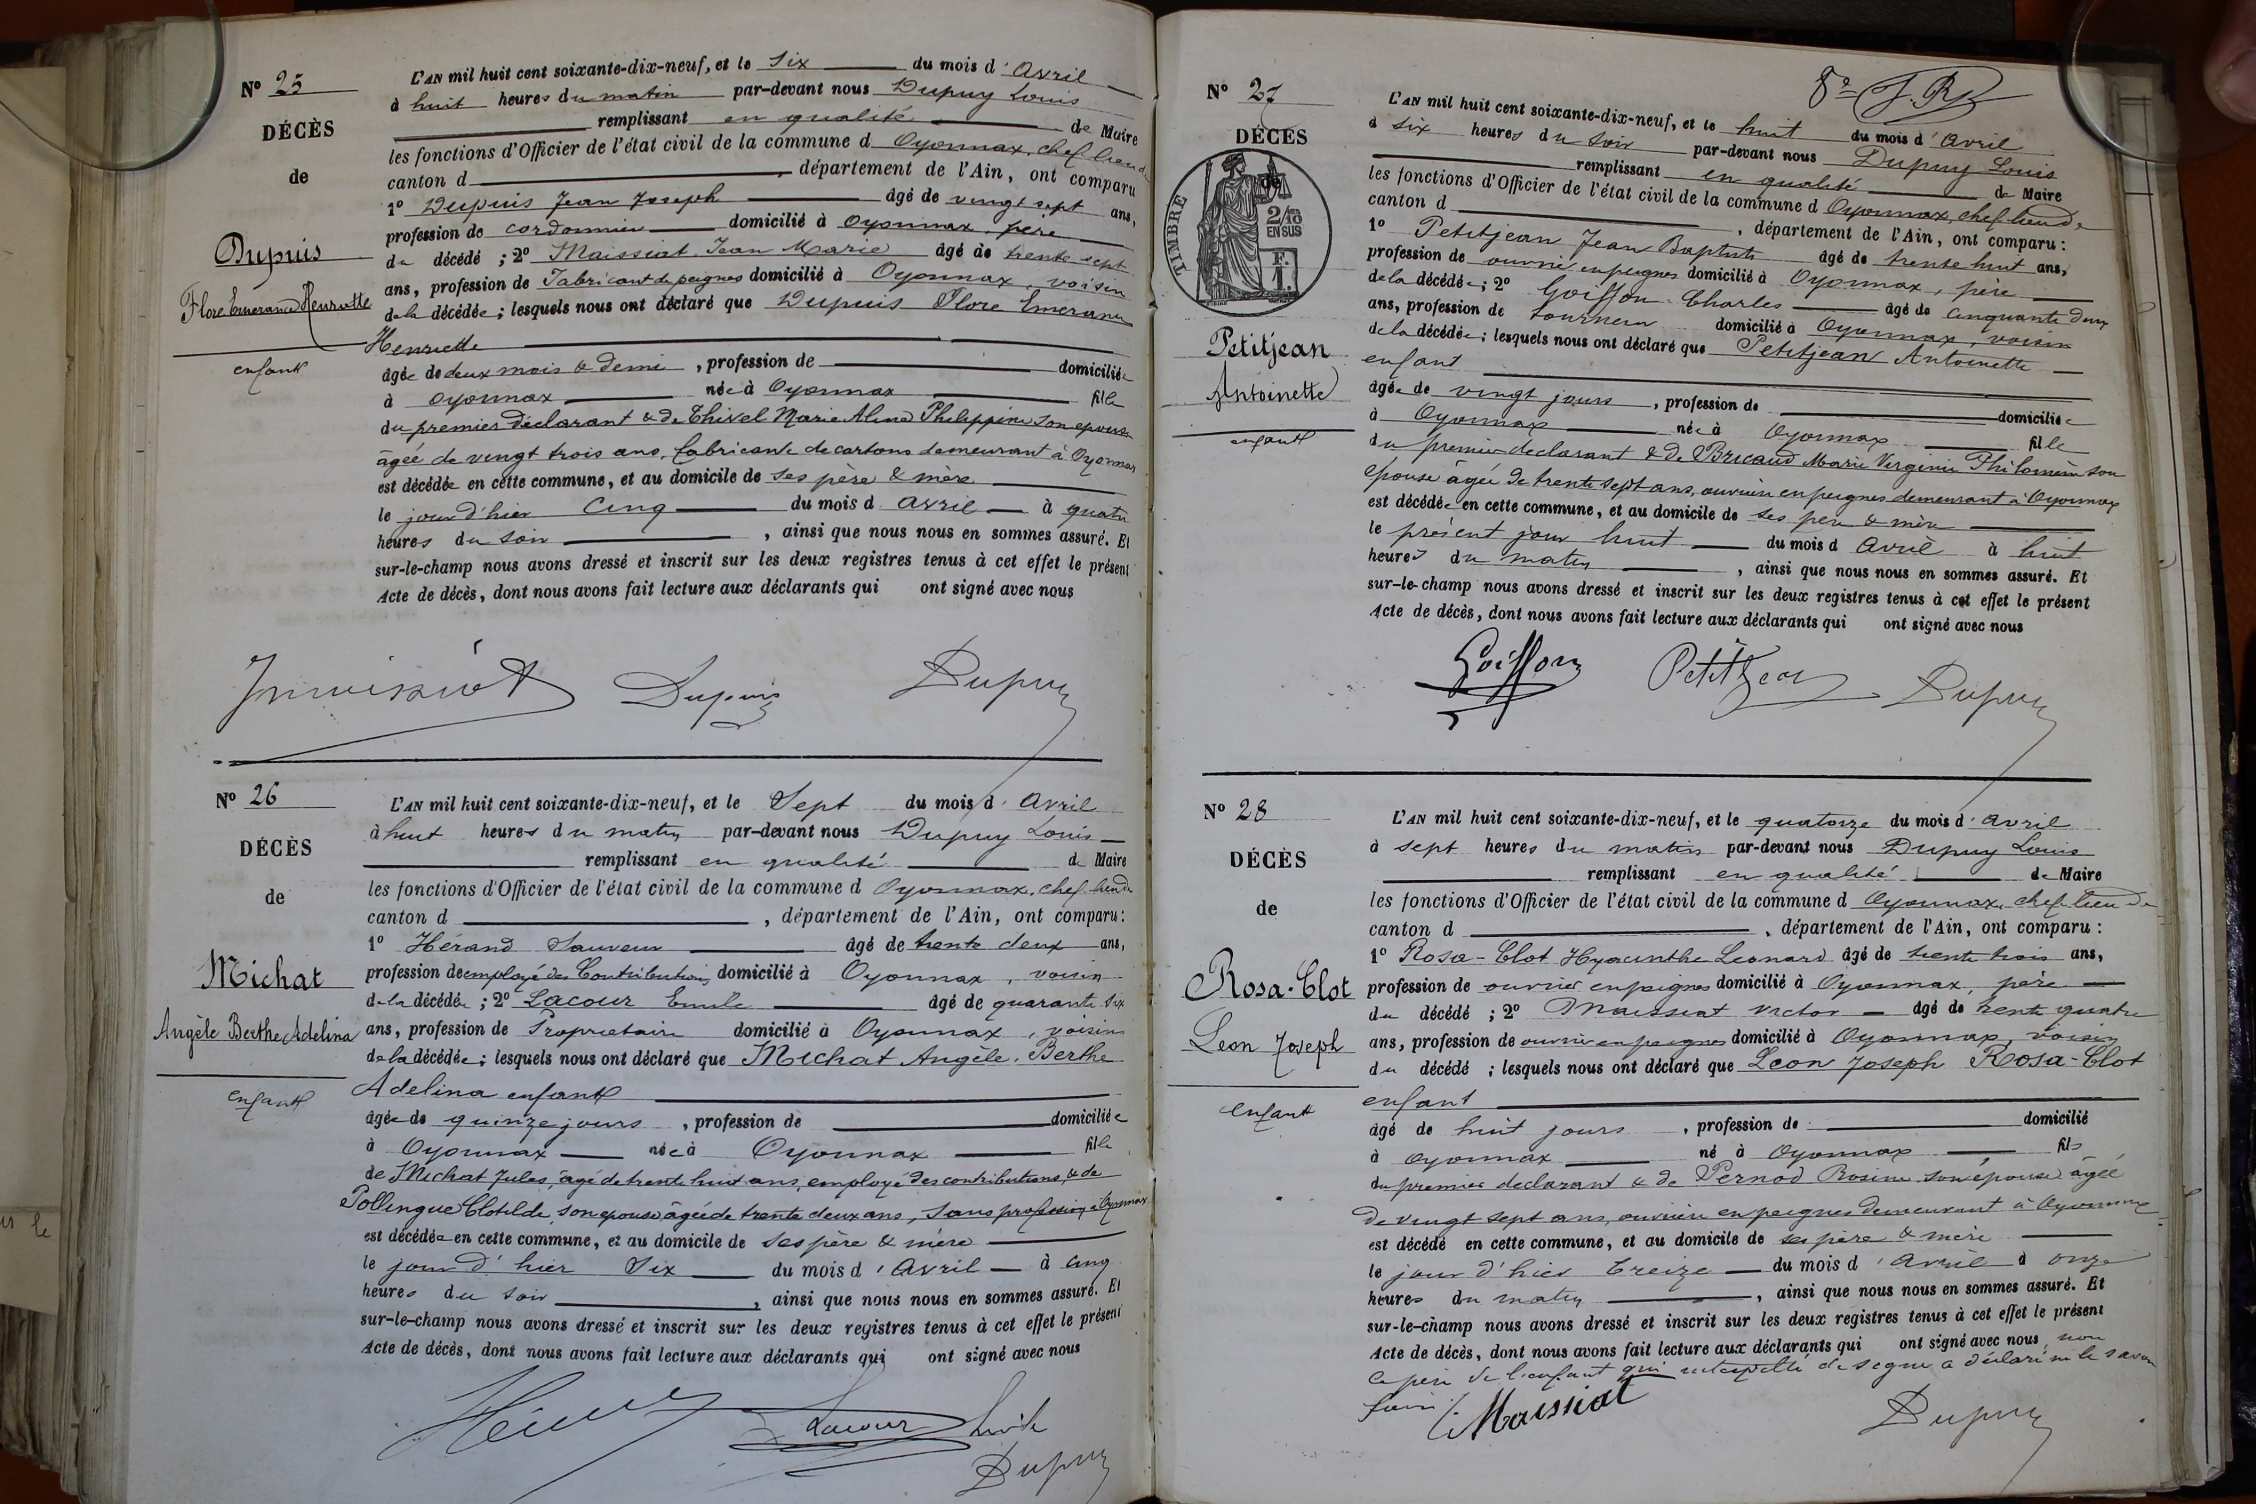 Nº 25
DÉCÈS
de
Dupuis
Flore Emerance Henriette
enfant
L'AN mil huit cent soixante-dix-neuf, et le six du mois d'Avril
à huit heures du matin par-devant nous Dupuy Louis
remplissant en qualité de Maire
les fonctions d'Officier de l'état civil de la commune d Oyonnax, chef lieu de
canton d , département de l'Ain, ont comparu
1º Dupuis Jean Joseph âgé de vingt sept ans,
profession de cordonnier domicilié à Oyonnax, père
du décédé ; 2º Maissiat Jean Marie âgé de trente sept
ans, profession de Fabricant de peignes domicilié à Oyonnax, voisin
de la décédée ; lesquels nous ont déclaré que Dupuis Flore Emerance
Henriette
âgée de deux mois & demi , profession de domiciliée
à Oyonnax née à Oyonnax fille
du premier déclarant & de Thivel Marie Aline Philippine son épouse
âgée de vingt trois ans, fabricante de cartons demeurant à Oyonnax
est décédée en cette commune, et au domicile de ses père & mère
le jour d'hier Cinq du mois d avril à quatre
heures du soir , ainsi que nous nous en sommes assuré. Et
sur-le-champ nous avons dressé et inscrit sur les deux registres tenus à cet effet le présent
Acte de décès, dont nous avons fait lecture aux déclarants qui ont signé avec nous
Dupuis Dupuy
Nº 26
DÉCÈS
de
Michat
Angèle Berthe Adelina
enfant
L'AN mil huit cent soixante-dix-neuf, et le Sept du mois d'Avril
à huit heures du matin par-devant nous Dupuy Louis
remplissant en qualité de Maire
les fonctions d'Officier de l'état civil de la commune d Oyonnax, chef lieu de
canton d , département de l'Ain, ont comparu :
1º Hérand Sauveur âgé de trente deux ans,
profession de employé des Contributions domicilié à Oyonnax, voisin
de la décédée ; 2º Lacour Emile âgé de quarante six
ans, profession de Propriétaire domicilié à Oyonnax, voisin
de la décédée ; lesquels nous ont déclaré que Michat Angèle, Berthe
Adelina enfant
âgée de quinze jours , profession de domiciliée
à Oyonnax née à Oyonnax fille
de Michat Jules, âgé de trente huit ans, employé des contributions, & de
Pollingue Clotilde, son epouse âgée de trente deux ans, sans profession à Oyonnax
est décédée en cette commune, et au domicile de ses père & mère
le jour d'hier Six du mois d'Avril à cinq
heures du soir , ainsi que nous nous en sommes assuré. Et
sur-le-champ nous avons dressé et inscrit sur les deux registres tenus à cet effet le présent
Acte de décès, dont nous avons fait lecture aux déclarants qui ont signé avec nous
Lacour
Dupuy
Nº 27
DÉCÈS
de
TIMBRE
2/10
EN SUS
F.
1.
Petitjean
Antoinette
enfant
L'AN mil huit cent soixante-dix-neuf, et le huit du mois d'Avril
à six heures du soir par-devant nous Dupuy Louis
remplissant en qualité de Maire
les fonctions d'Officier de l'état civil de la commune d Oyonnax, chef lieu de
canton d , département de l'Ain, ont comparu :
1º Petitjean Jean Baptiste âgé de trente huit ans,
profession de ouvrier en peignes domicilié à Oyonnax, père
de la décédée ; 2º Goiffon Charles âgé de cinquante deux
ans, profession de tourneur domicilié à Oyonnax, voisin
de la décédée ; lesquels nous ont déclaré que Petitjean Antoinette
enfant
âgée de vingt jours , profession de domiciliée
à Oyonnax née à Oyonnax fille
du premier declarant & de Bricaud Marie Virginie Philomène son
épouse âgée de trente sept ans, ouvrière en peignes demeurant à Oyonnax
est décédée en cette commune, et au domicile de ses père & mère
le présent jour huit du mois d Avril à huit
heures du matin , ainsi que nous nous en sommes assuré. Et
sur-le-champ nous avons dressé et inscrit sur les deux registres tenus à cet effet le présent
Acte de décès, dont nous avons fait lecture aux déclarants qui ont signé avec nous
Goiffon Petitjean Dupuy
Nº 28
DÉCÈS
de
Rosa-Clot
Leon Joseph
enfant
L'AN mil huit cent soixante-dix-neuf, et le quatorze du mois d'avril
à sept heures du matin par-devant nous Dupuy Louis
remplissant en qualité de Maire
les fonctions d'Officier de l'état civil de la commune d Oyonnax, chef lieu de
canton d , département de l'Ain, ont comparu :
1º Rosa-Clot Hyacinthe Leonard âgé de trente trois ans,
profession de ouvrier en peignes domicilié à Oyonnax, père
du décédé ; 2º Maissiat Victor âgé de trente quatre
ans, profession de ouvrier en peignes domicilié à Oyonnax, voisin
du décédé ; lesquels nous ont déclaré que Leon Joseph Rosa-Clot
enfant
âgé de huit jours , profession de domicilié
à Oyonnax né à Oyonnax fils
du premier declarant & de Pernod Rosine son épouse âgée
de vingt sept ans, ouvrière en peignes demeurant à Oyonnax
est décédé en cette commune, et au domicile de ses père & mère
le jour d'hier treize du mois d'Avril à onze
heures du matin , ainsi que nous nous en sommes assuré. Et
sur-le-champ nous avons dressé et inscrit sur les deux registres tenus à cet effet le présent
Acte de décès, dont nous avons fait lecture aux déclarants qui ont signé avec nous, non
le père de l'enfant qui interpellé de signer a déclaré ne le savoir
faire
Maissiat Dupuy